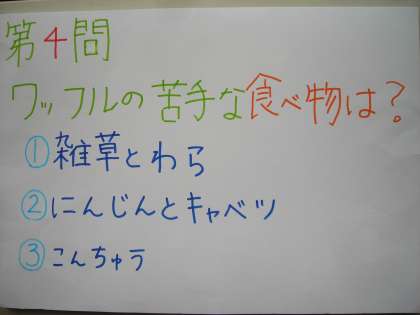 第4問
ワッフルの苦手な食べ物は？
①雑草とわら
②にんじんとキャベツ
③こんちゅう